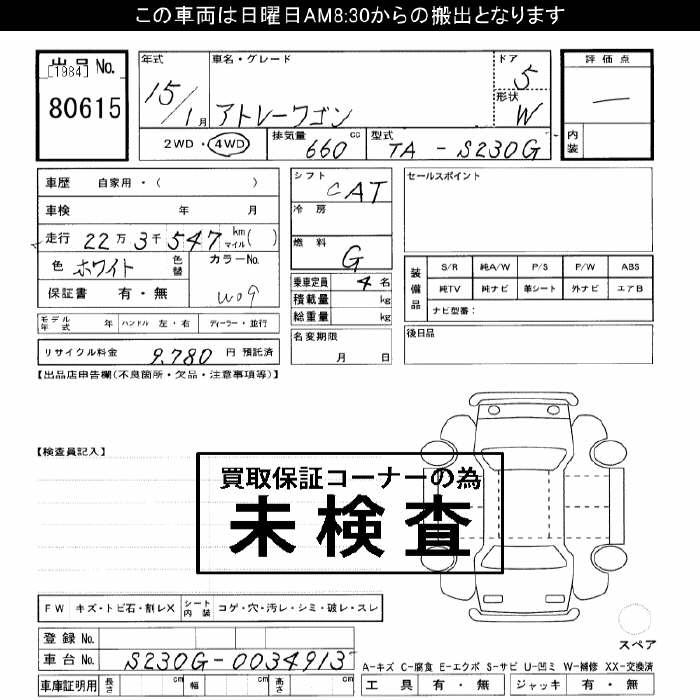 この車両は日曜日AM8:30からの搬出となります
出品No.
[1984]
80615
年式
15/1月
車名・グレード
アトレーワゴン
ドア
5
形状
W
評価点
—
内装
2WD・4WD
排気量
660 cc
型式
TA - S230G
車歴 自家用・( )
車検 年 月
走行 22万3千547 km マイル( )
色 ホワイト 色替
カラーNo.
W09
保証書 有・無
シフト
CAT
冷房
燃料
G
乗車定員 4名
積載量 kg
総重量 kg
セールスポイント
装備品
S/R 純A/W P/S P/W ABS
純TV 純ナビ 革シート 外ナビ エアB
ナビ型番:
モデル年式 年 ハンドル 左・右 ディーラー・並行
名変期限
月 日
後日品
リサイクル料金 9,780 円 預託済
【出品店申告欄(不良箇所・欠品・注意事項等)】
【検査員記入】
買取保証コーナーの為
未検査
FW キズ・トビ石・割レX シート内装 コゲ・穴・汚レ・シミ・破レ・スレ
登録No.
車台No. S230G-0034913
車庫証明用 長さ cm 幅 cm 高さ cm
スペア
A-キズ C-腐食 E-エクボ S-サビ U-凹ミ W-補修 XX-交換済
工具 有・無 ジャッキ 有・無